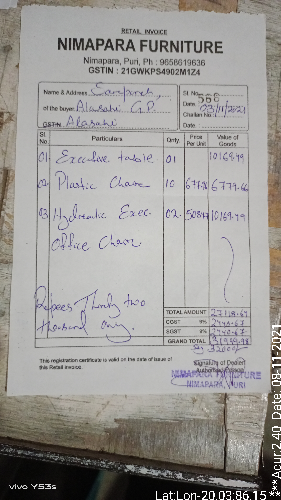 RETAIL INVOICE
NIMAPARA FURNITURE
Nimapara, Puri, Ph : 9658619636
GSTIN : 21GWKPS4902M1Z4
Name & Address Sarpanch,
of the buyer Alasahi G.P.
GSTIN Alasahi
Sl. No. 568
Date 03/11/2021
Challan No.
Date
Sl. No. Particulars Qnty. Price Per Unit Value of Goods
01 Executive table 01 10169.49
02 Plastic Chair 10 6779.66
03 Hydraulic Exec. 02 10169.49
Office Chair
Rupees Thirty two
thousand only.
TOTAL AMOUNT
CGST 9% 2440.67
SGST 9% 2440.67
GRAND TOTAL
32000/-
This registration certificate is valid on the date of issue of
this Retail invoice.
Signature of Dealer
NIMAPARA FURNITURE
NIMAPARA, PURI
vivo Y53s
Lat:Lon-20.03:86.15
***Acur:2.40 Date:09-11-2021